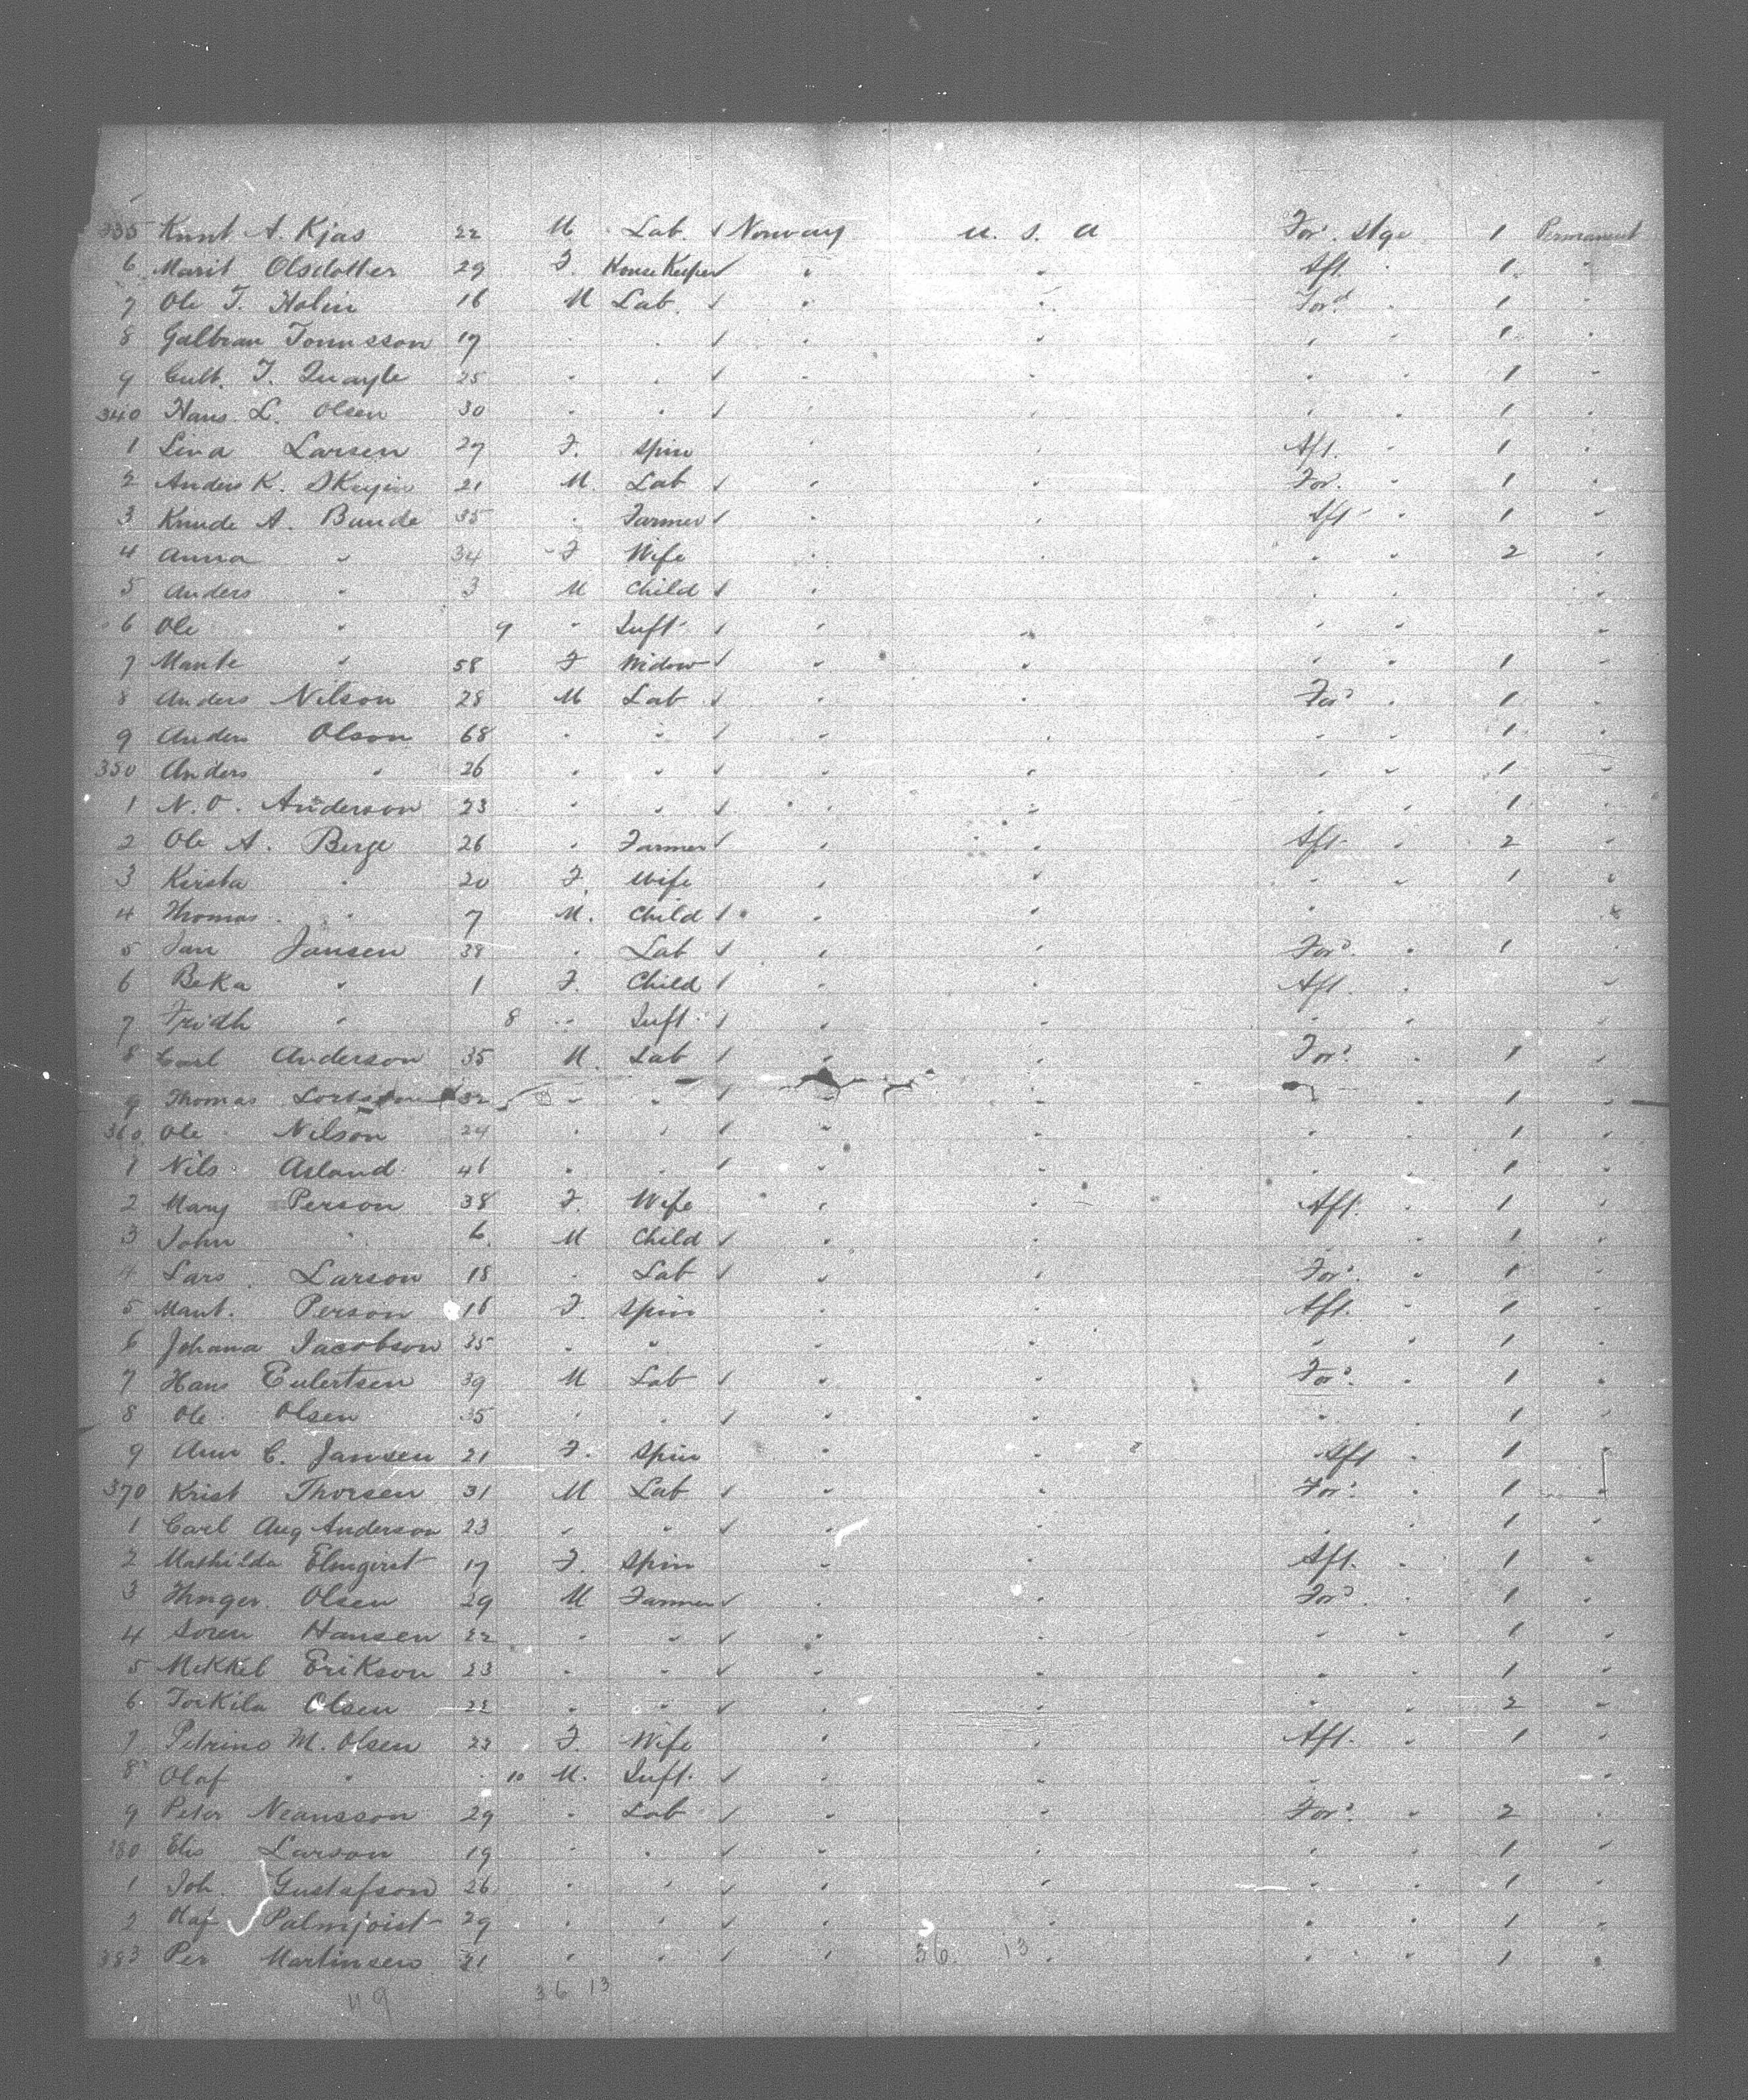 335 Knut A. Kjas 22 M Lab. ✓ Norway U. S. A For'd Stge 1 Permanent
6 Marit Olsdotter 29 F. House Keeper ✓ " " Aft. " 1 "
7 Ole T. Holin 16 M Lab. ✓ " " For'd " 1 "
8 Galbran Tonnsson 19 " " ✓ " " " " 1 "
9 T. Quayle 25 " " ✓ " " " " 1 "
340 Hans L. Olsen 30 " " ✓ " " " " 1 "
1 Lina Larsen 27 F. Spin " " Aft. " 1 "
2 Anders K. 21 M. Lab ✓ " " For. " 1 "
3 Knude A. Bunde 35 " Farmer ✓ " " Aft " 1 "
4 Anna " 34 F Wife " " " " 2 "
5 Anders " 3 M Child ✓ " " " " "
6 Ole " 9 " Inft ✓ " " " " "
7 Marite " 58 F Widow ✓ " " " " 1 "
8 Anders Nilson 28 M Lab ✓ " " For'd " 1 "
9 Anders Olson 68 " " ✓ " " " " 1 "
350 Anders " 26 " " ✓ " " " " 1 "
1 N. O. Anderson 23 " " ✓ " " " " 1 "
2 Ole A. Berge 26 " Farmer ✓ " " Aft. " 2 "
3 Kirsta " 20 F. Wife " " " " 1 "
4 Thomas " 7 M. Child ✓ " " " "
5 Jan Jansen 38 " Lab ✓ " " For'd " 1 "
6 Beka " 1 F. Child ✓ " " Aft. "
7 Fridth " 8 " Inft ✓ " " " " "
8 Carl Anderson 35 M. Lab ✓ " " For'd " 1 "
9 Thomas 32 " " ✓ " 1 "
360 Ole Nilson 24 " " ✓ " " " " 1 "
1 Nils Asland 46 " " ✓ " " " " 1 "
2 Mary Person 38 F. Wife " " Aft. " 1 "
3 John " 6 M Child ✓ " " " " 1 "
4 Lars Larson 18 " Lab ✓ " " For'd " 1 "
5 Marit. Person 16 F. Spin " " Aft. " 1 "
6 Johana Jacobson 35 " " " " " " 1 "
7 Hans Eulertsen 39 M Lab ✓ " " For'd " 1 "
8 Ole Olsen 35 " " ✓ " " " " 1 "
9 Ann C. Jansen 21 F. Spin " " Aft " 1
370 Krist Thorsen 31 M Lab ✓ " " For'd " 1 "
1 Carl Aug Anderson 23 " " ✓ " " " " 1 "
2 Mathilda Elmqvist 17 F. Spin " " Aft. " 1 "
3 Olsen 29 M Farmer ✓ " " For'd " 1 "
4 Soren Hansen 22 " " ✓ " " " " 1 "
5 Mekkel Erikson 23 " " ✓ " " " " 1 "
6 Torkila Olsen 22 " " ✓ " " " " 2 "
7 Petrino M. Olsen 23 F. Wife " " Aft. " 1 "
8 Olaf " 10 M. Inft. ✓ " " " " "
9 Peter Neansson 29 " Lab ✓ " " For'd " 2 "
380 Elis Larson 19 " " ✓ " " " " 1 "
1 Joh. Gustafson 26 " " ✓ " " " " 1 "
2 Olaf Palmqvist 29 " " ✓ " " " " 1 "
383 Per Martinsens 21 " " ✓ " 36. 13 " " " 1 "
119 36 13